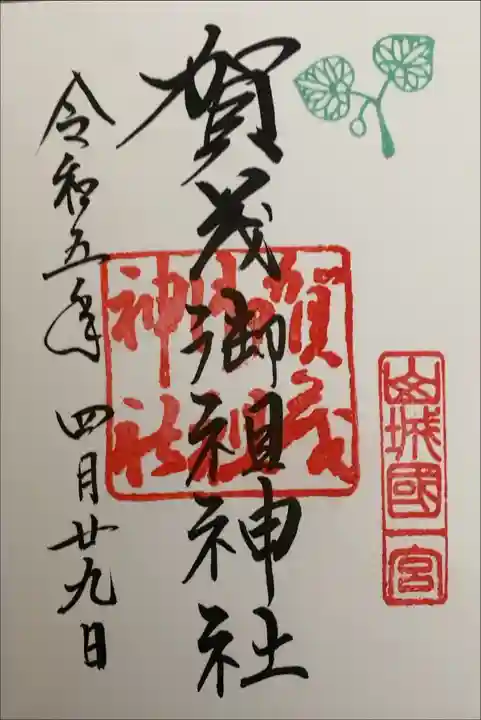 山城國一宮
賀茂御祖神社
賀茂
御祖
神社
令和五年四月廿九日